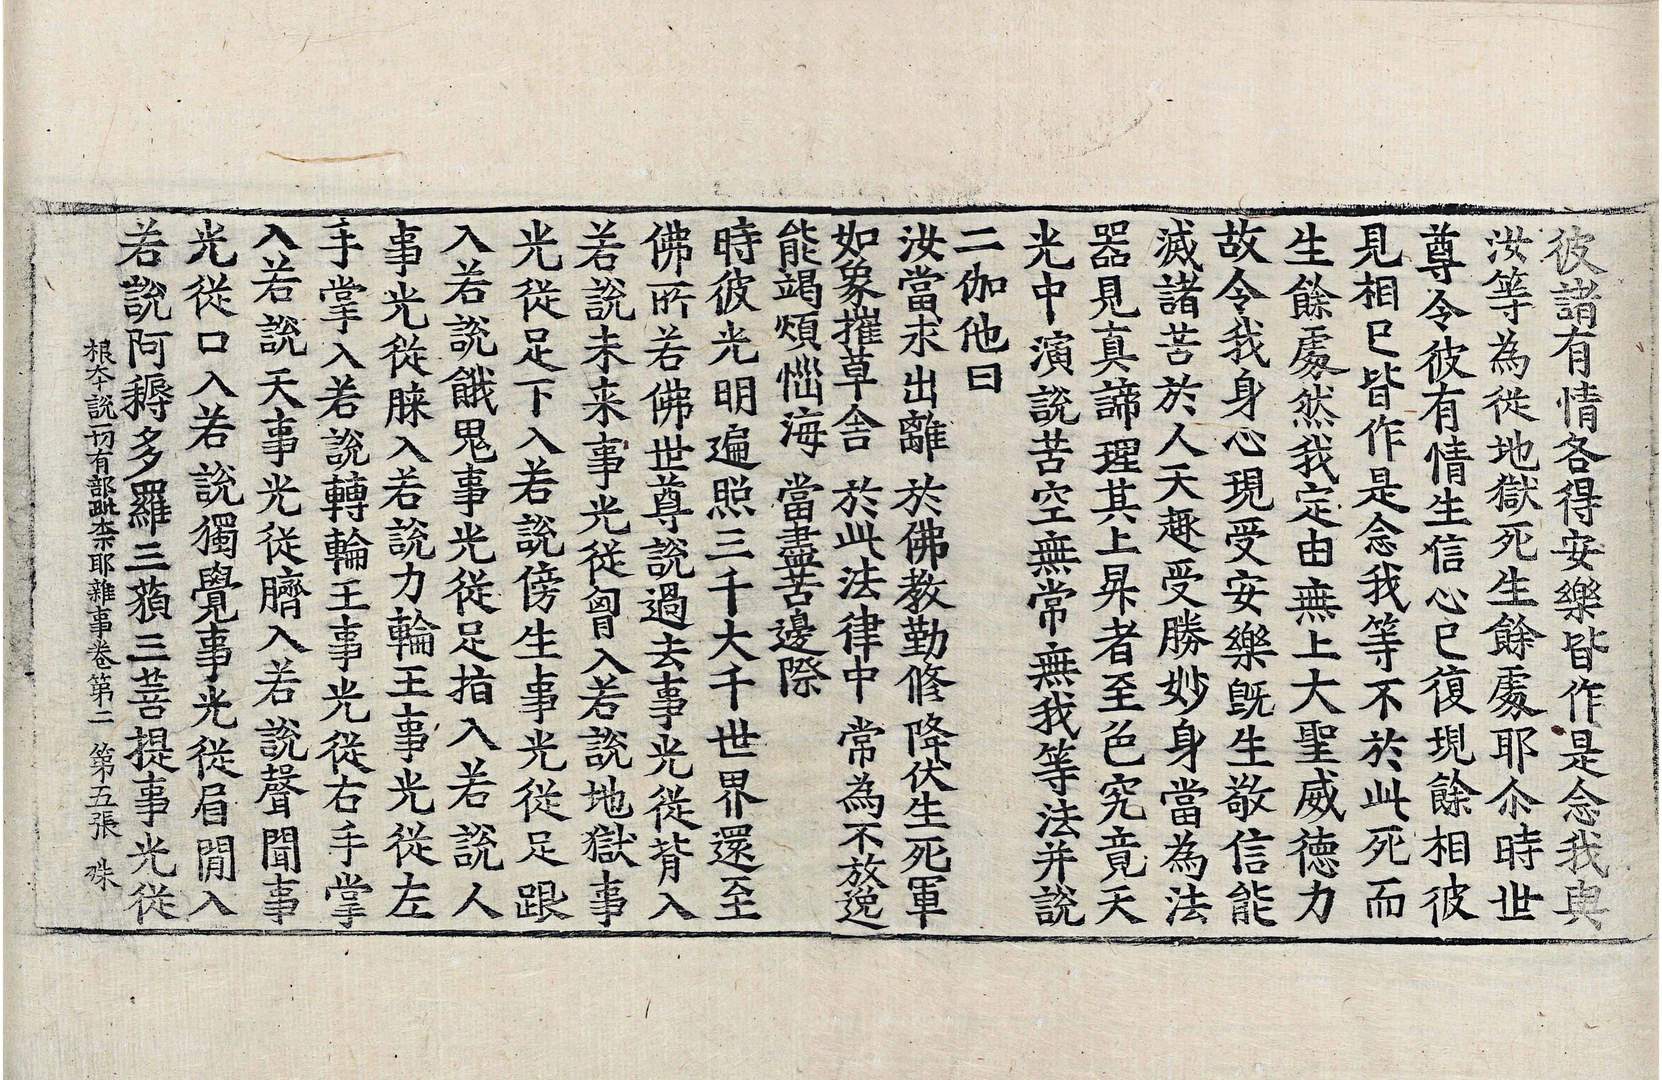 彼諸有情各得安樂皆作是念我與
汝等為從地獄死生餘處耶尒時世
尊令彼有情生信心已復現餘相彼
見相已皆作是念我等不於此死而
生餘處然我定由無上大聖威德力
故令我身心現受安樂旣生敬信能
滅諸苦於人天趣受勝妙身當為法
器見真諦理其上昇者至色究竟天
光中演說苦空無常無我等法并說
二伽他曰
汝當求出離 於佛教勤修 降伏生死軍
如象摧草舍 於此法律中 常為不放逸
能竭煩惱海 當盡苦邊際
時彼光明遍照三千大千世界還至
佛所若佛世尊說過去事光從背入
若說未来事光從匈入若說地獄事
光從足下入若說傍生事光從足跟
入若說餓鬼事光從足指入若說人
事光從膝入若說力輪王事光從左
手掌入若說轉輪王事光從右手掌
入若說天事光從臍入若說聲聞事
光從口入若說獨覺事光從眉間入
若說阿耨多羅三藐三菩提事光從
根本說一切有部毗柰耶雜事卷第二 第五張 殊